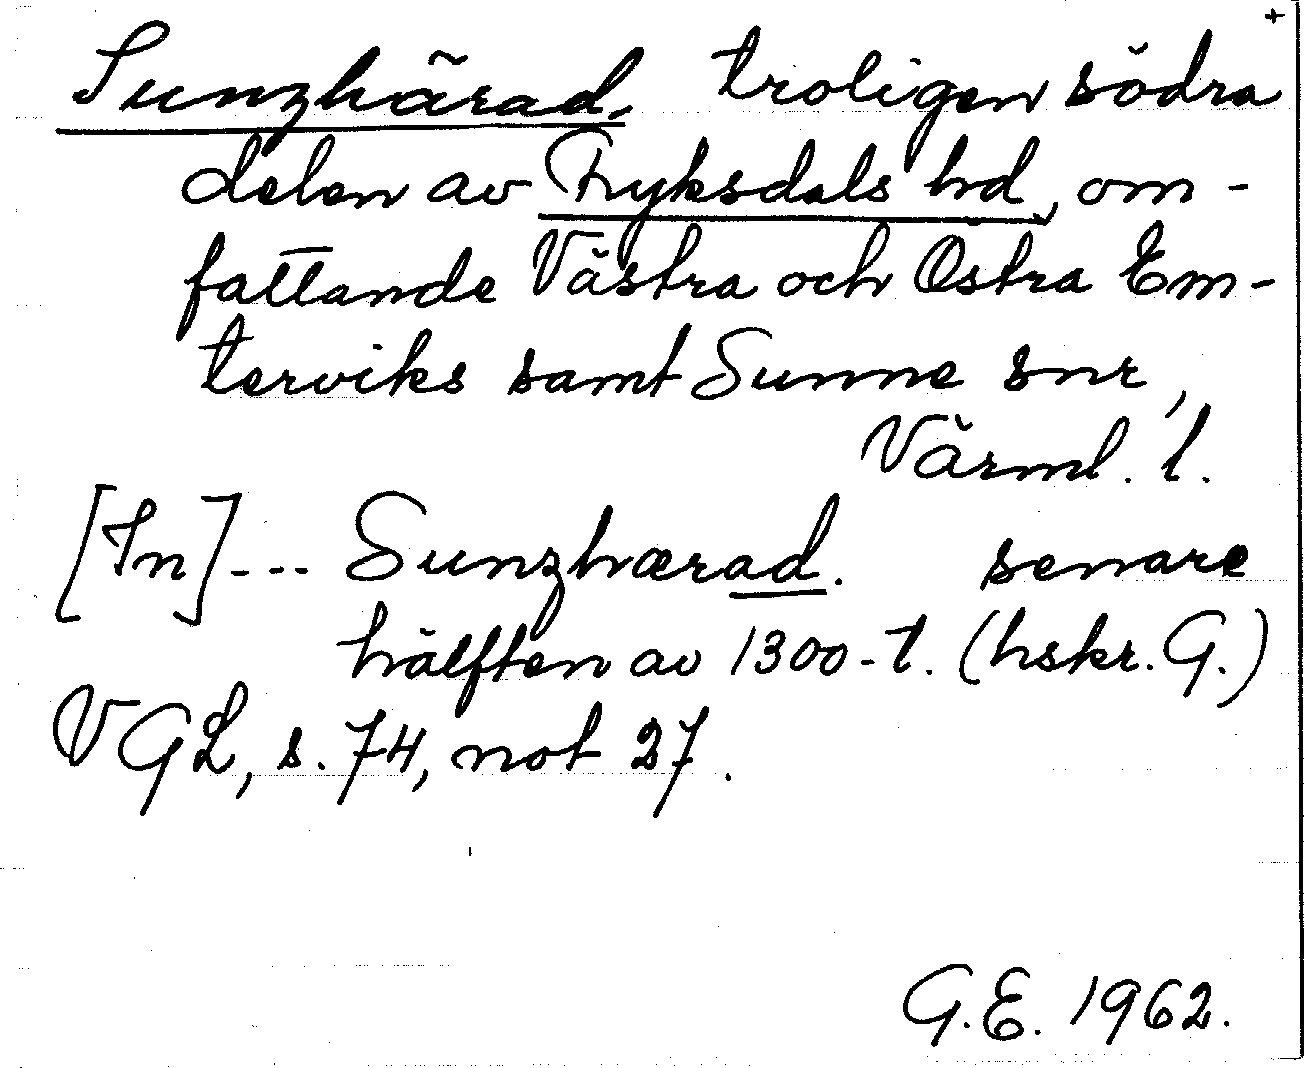 +
Sunzhärad, troligen södra
delen av Fryksdals hd, om-
fattande Västra och Östra Em-
terviks samt Sunne snr,
Värml. l.
[In]--- Sunzhærad. senare
hälften av 1300-t. (hskr. G.)
VGL, s. 74, not 27.
G.E. 1962.